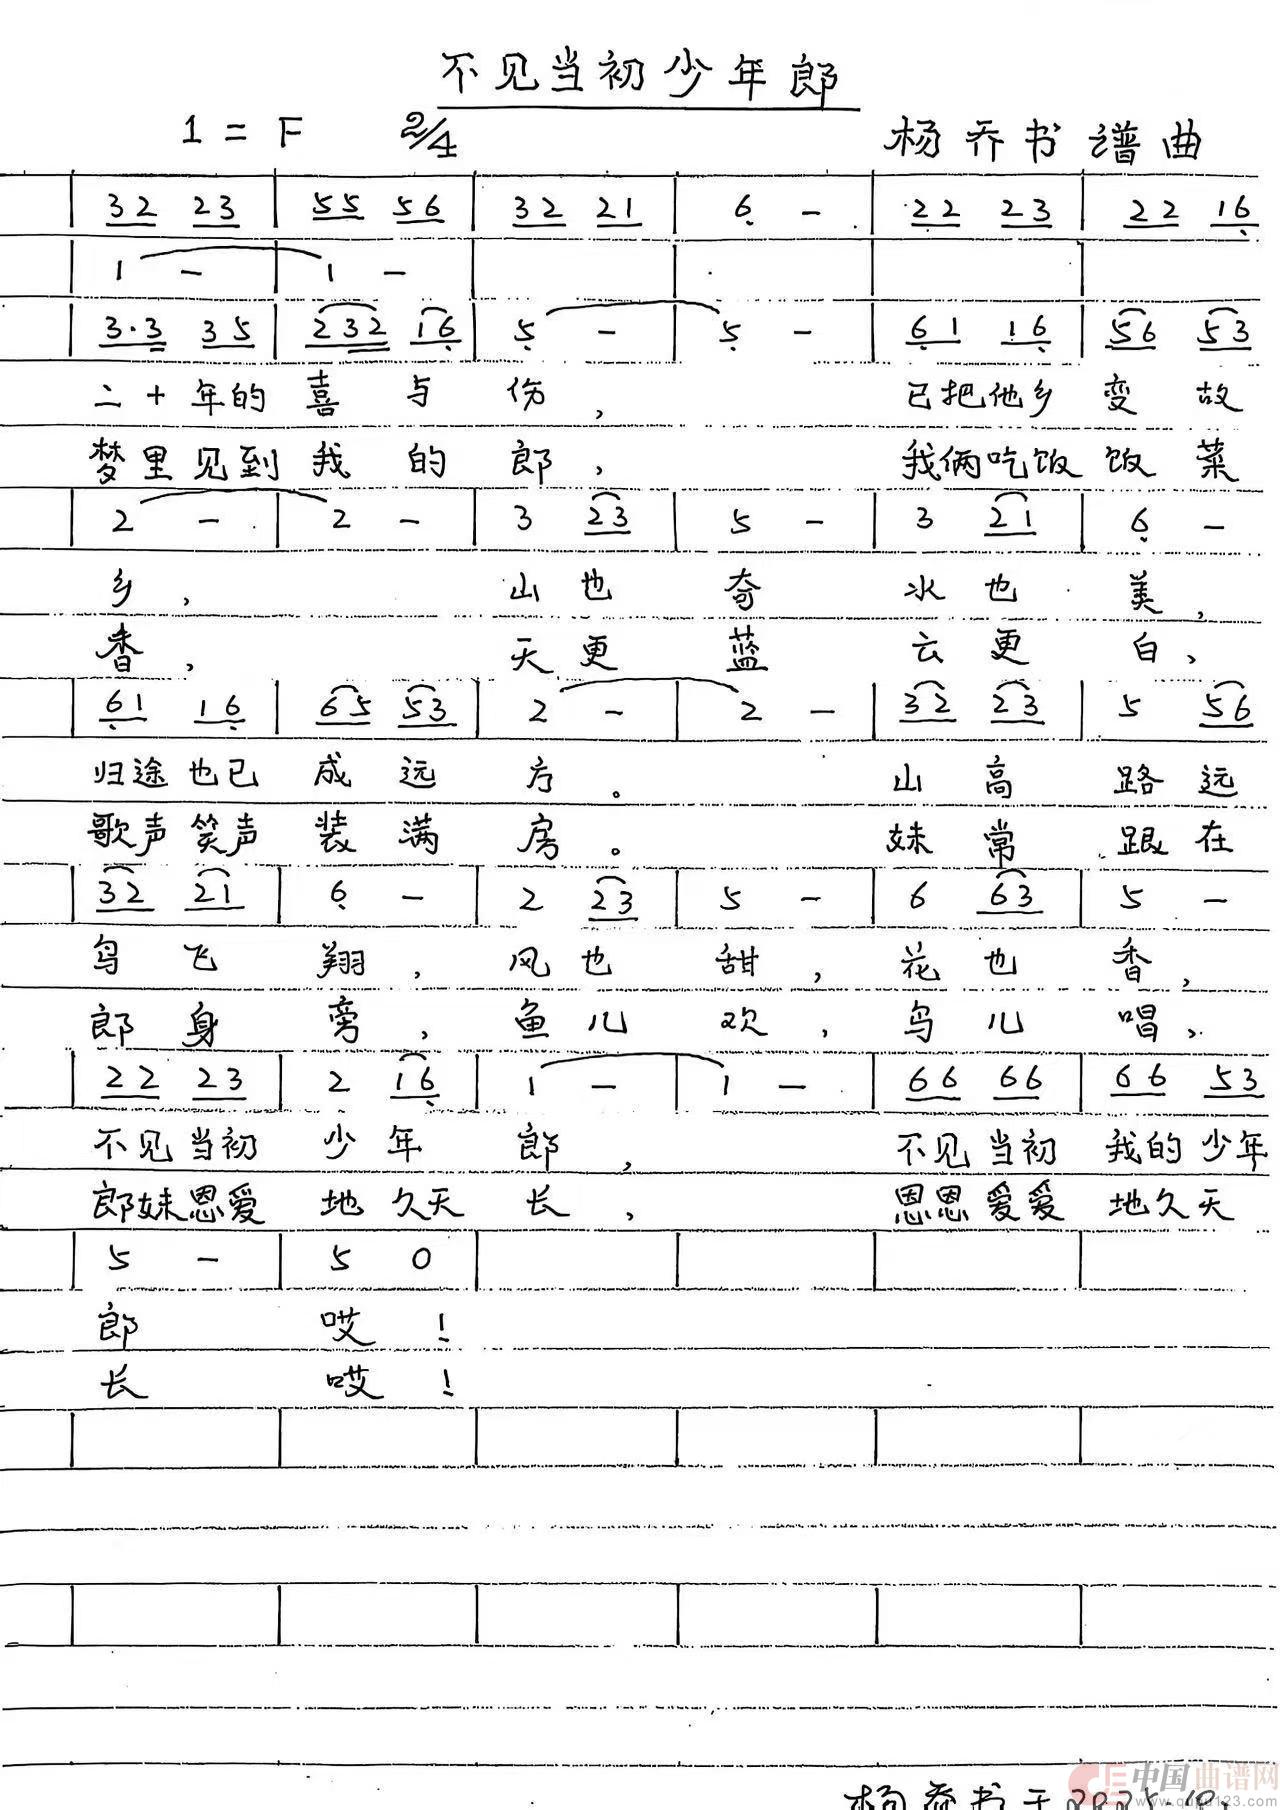 不见当初少年郎
1 = F 2/4 杨乔书谱曲
32 23 | 55 56 | 32 21 | 6 - | 22 23 | 22 16
1 - | 1 -
3·3 35 | 232 16 | 5 - | 5 - | 61 16 | 56 53
二十年的喜与伤, 已把他乡变故
梦里见到我的郎, 我俩吃饭饭菜
2 - | 2 - | 3 23 | 5 - | 3 21 | 6 -
乡, 山也奇 水也美,
香, 天更蓝 云更白,
61 16 | 65 53 | 2 - | 2 - | 32 23 | 5 56
归途也已成远方。 山高路远
歌声笑声装满房。 妹常跟在
32 21 | 6 - | 2 23 | 5 - | 6 63 | 5 -
鸟飞翔, 风也甜, 花也香,
郎身旁, 鱼儿欢, 鸟儿唱,
22 23 | 2 16 | 1 - | 1 - | 66 66 | 66 53
不见当初少年郎, 不见当初我的少年
郎妹恩爱地久天长, 恩恩爱爱地久天
5 - | 5 0
郎 哎!
长 哎!
中国曲谱网
www.qupu123.com